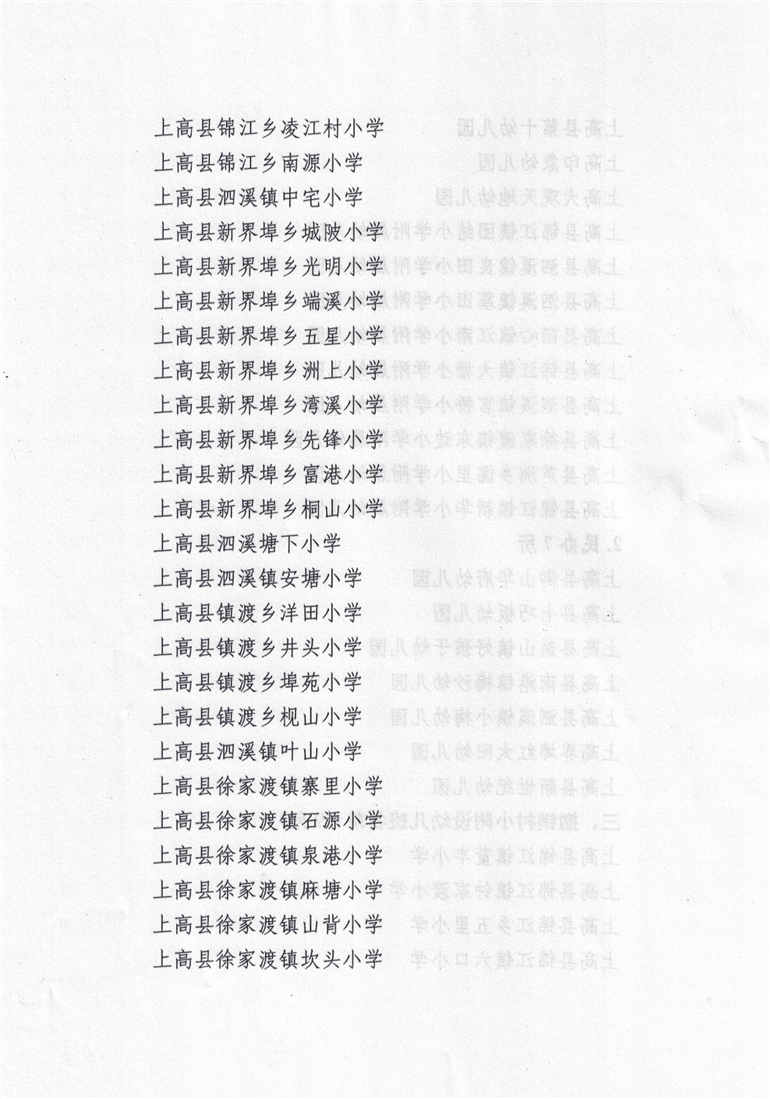 上高县锦江乡凌江村小学
上高县锦江乡南源小学
上高县泗溪镇中宅小学
上高县新界埠乡城陂小学
上高县新界埠乡光明小学
上高县新界埠乡端溪小学
上高县新界埠乡五星小学
上高县新界埠乡洲上小学
上高县新界埠乡湾溪小学
上高县新界埠乡先锋小学
上高县新界埠乡富港小学
上高县新界埠乡桐山小学
上高县泗溪塘下小学
上高县泗溪镇安塘小学
上高县镇渡乡洋田小学
上高县镇渡乡井头小学
上高县镇渡乡埠苑小学
上高县镇渡乡枧山小学
上高县泗溪镇叶山小学
上高县徐家渡镇寨里小学
上高县徐家渡镇石源小学
上高县徐家渡镇泉港小学
上高县徐家渡镇麻塘小学
上高县徐家渡镇山背小学
上高县徐家渡镇坎头小学